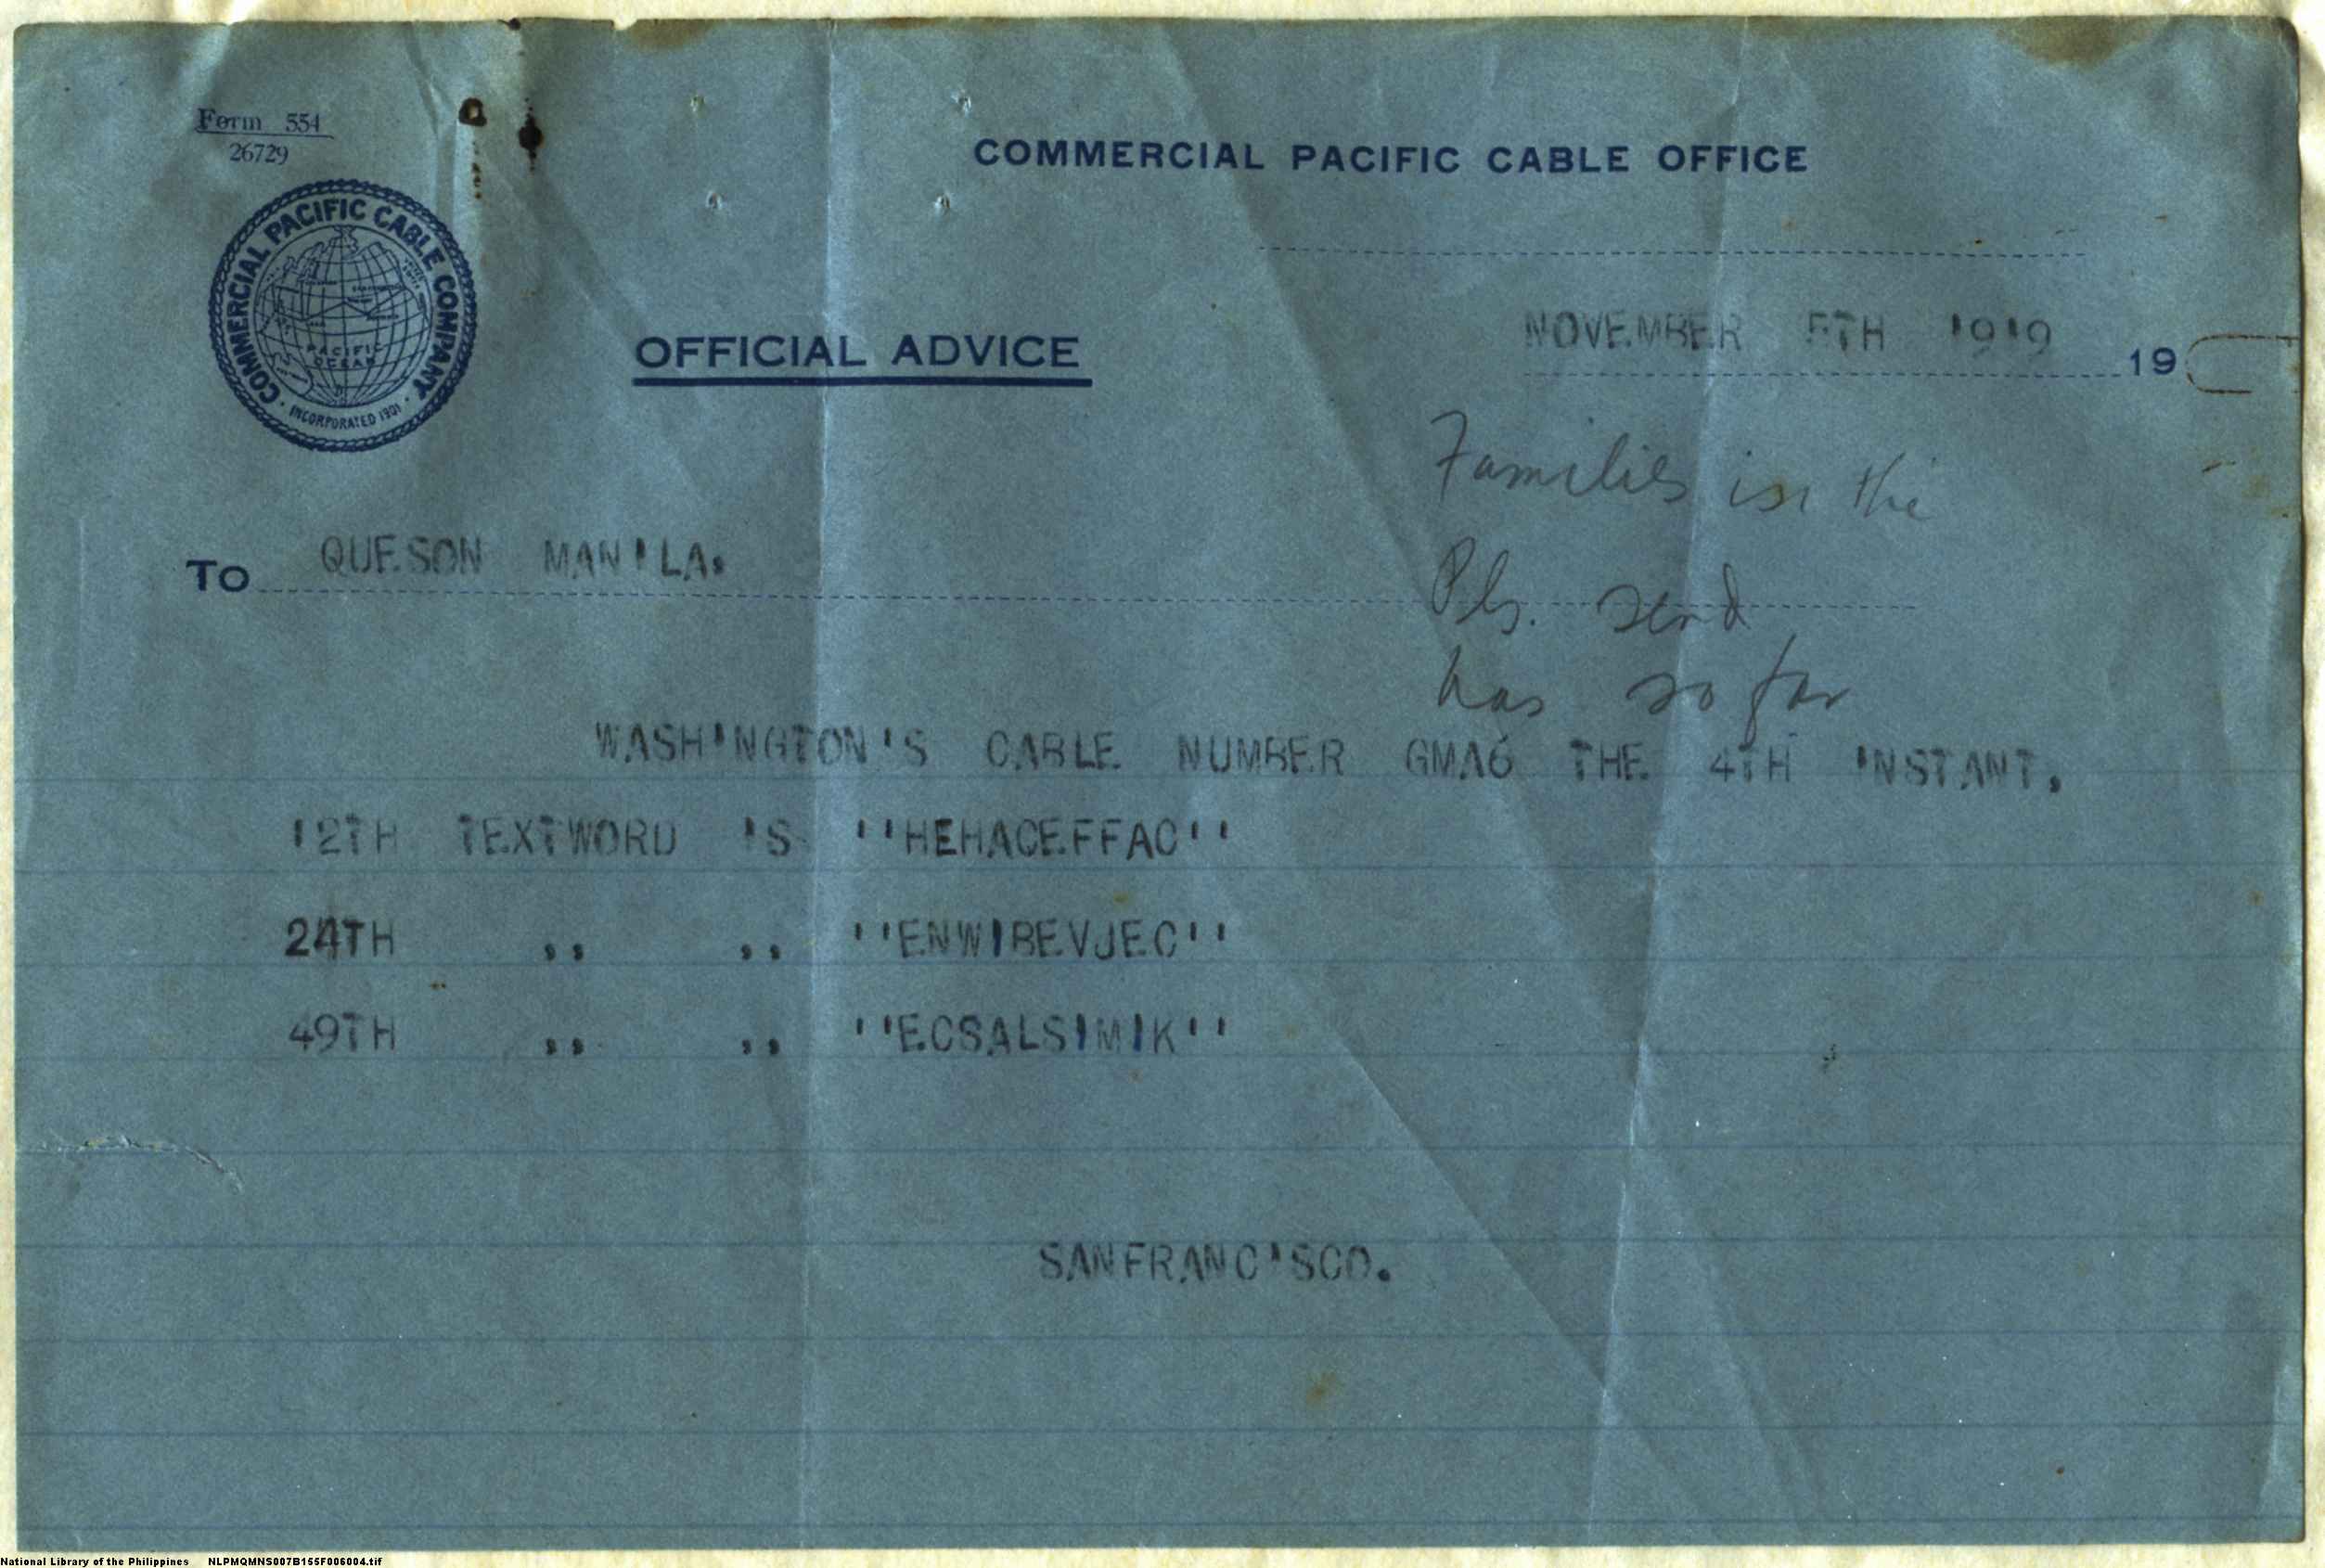 Form 554
26729
COMMERCIAL PACIFIC CABLE OFFICE
COMMERCIAL PACIFIC CABLE COMPANY
PACIFIC
OCEAN
INCORPORATED 1901
OFFICIAL ADVICE
NOVEMBER 5TH 1919 19
Families in the
To QUESON MANILA.
Pls. send
has so far
WASHINGTON'S CABLE NUMBER GMA6 THE 4TH INSTANT.
12TH TEXTWORD IS ''HEHACEFFAC''
24TH ,, ,, ''ENWIBEVJEC''
49TH ,, ,, ''ECSALSIMIK''
SANFRANCISCO.
National Library of the Philippines NLPMQMNS007B155F006004.tif